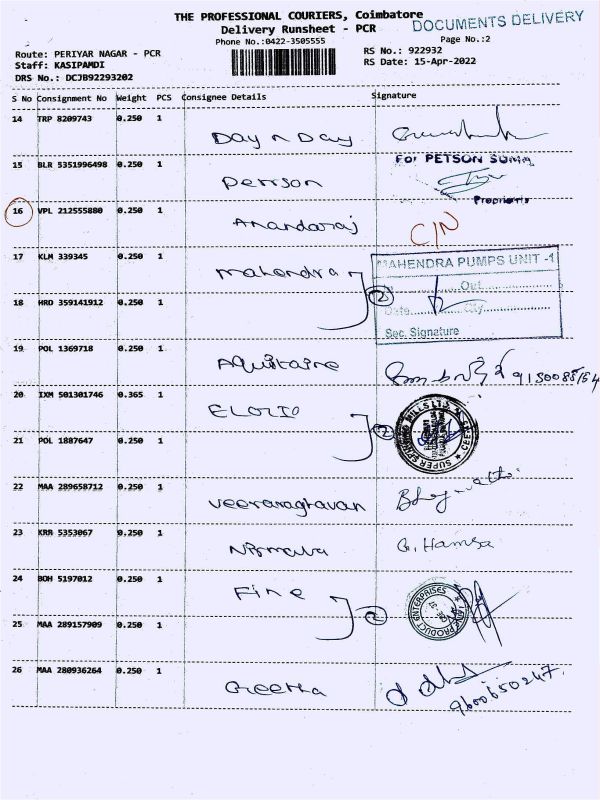 THE PROFESSIONAL COURIERS, Coimbatore
DOCUMENTS DELIVERY
Delivery Runsheet - PCR
Phone No.:0422-3505555
Page No.:2
Route: PERIYAR NAGAR - PCR
RS No.: 922932
Staff: KASIPAMDI
RS Date: 15-Apr-2022
DRS No.: DCJB92293202
S No Consignment No Weight PCS Consignee Details Signature
14 TRP 8209743 0.250 1
Day n Day
15 BLR 5351996498 0.250 1
For PETSON
Perrson
16 VPL 212555880 0.250 1
Anandaraj
C/N
17 KLM 339345 0.250 1
Mahendra 2
MAHENDRA PUMPS UNIT -1
Out
Date
Sec. Signature
18 HRD 359141912 0.250 1
19 POL 1369718 0.250 1
Aquitaire
20 IXM 501301746 0.365 1
2
SUPER SPINNING MILLS LTD
21 POL 1887647 0.250 1
22 MAA 289658712 0.250 1
Veeraragtavan
23 KRR 5353067 0.250 1
Nirmala
G. Hamsa
24 BOH 5197012 0.250 1
Fine 2
PRODUCT ENTERPRISES
25 MAA 289157909 0.250 1
26 MAA 280936264 0.250 1
Geetha
9600650247.